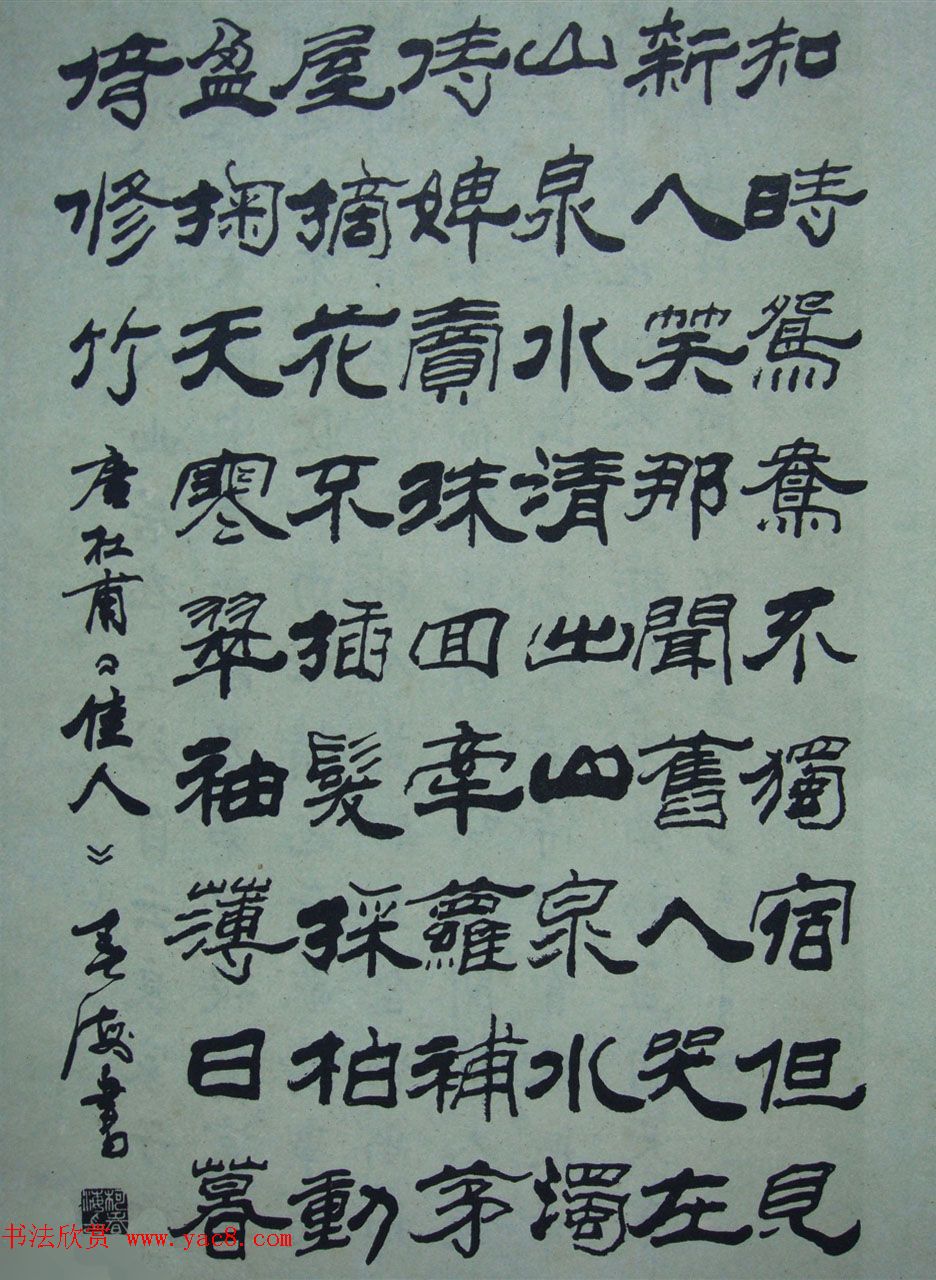 知時鴛鴦不獨宿但見
新人笑那聞舊人哭在
山泉水清出山泉水濁
侍婢賣珠回牽蘿補茅
屋摘花不插髮採柏動
盈掬天寒翠袖薄日暮
倚修竹 唐杜甫《佳人》春海書
书法欣赏 www.yac8.com